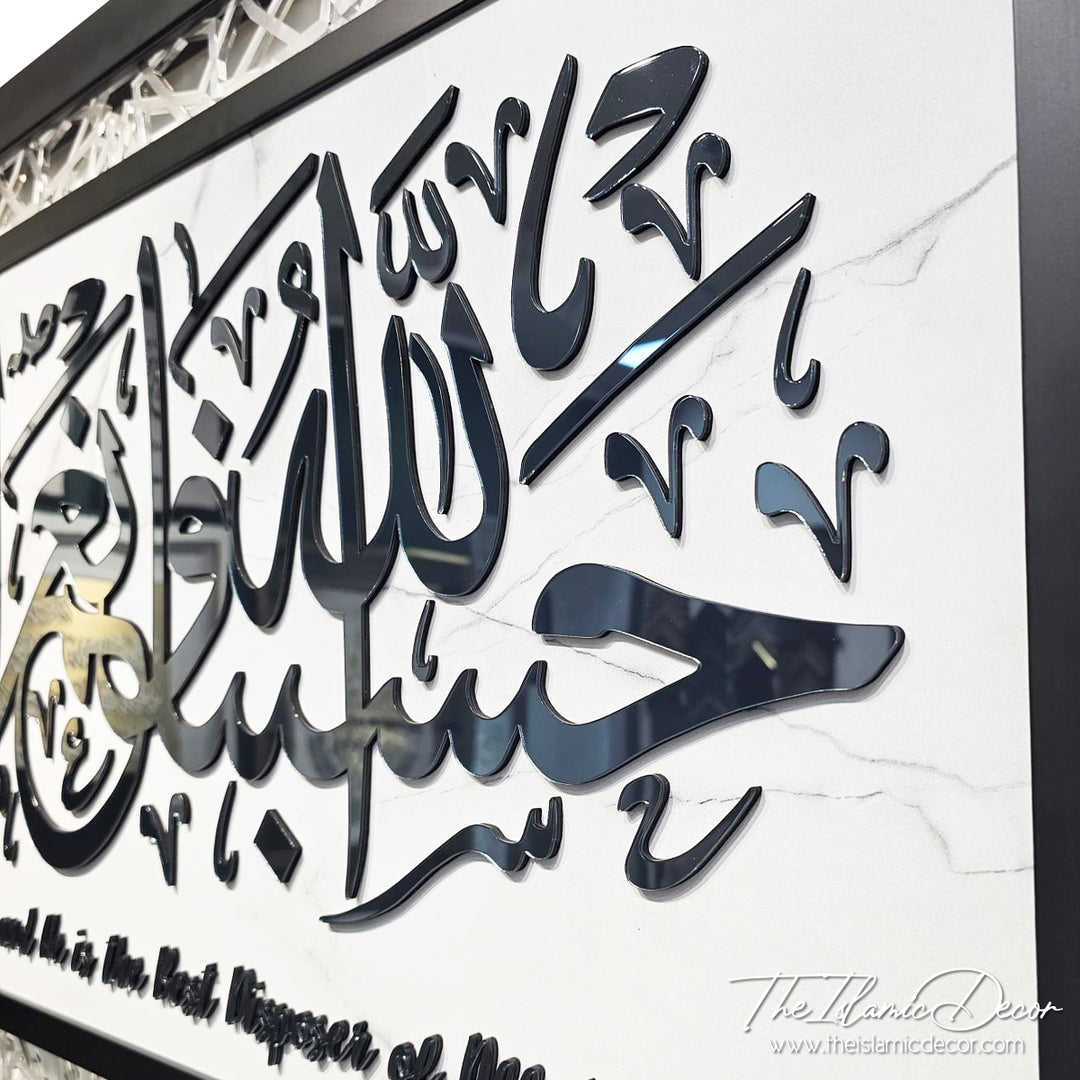 حسبنا الله ونعم
and He is the Best Disposer of
The Islamic Decor
www.theislamicdecor.com